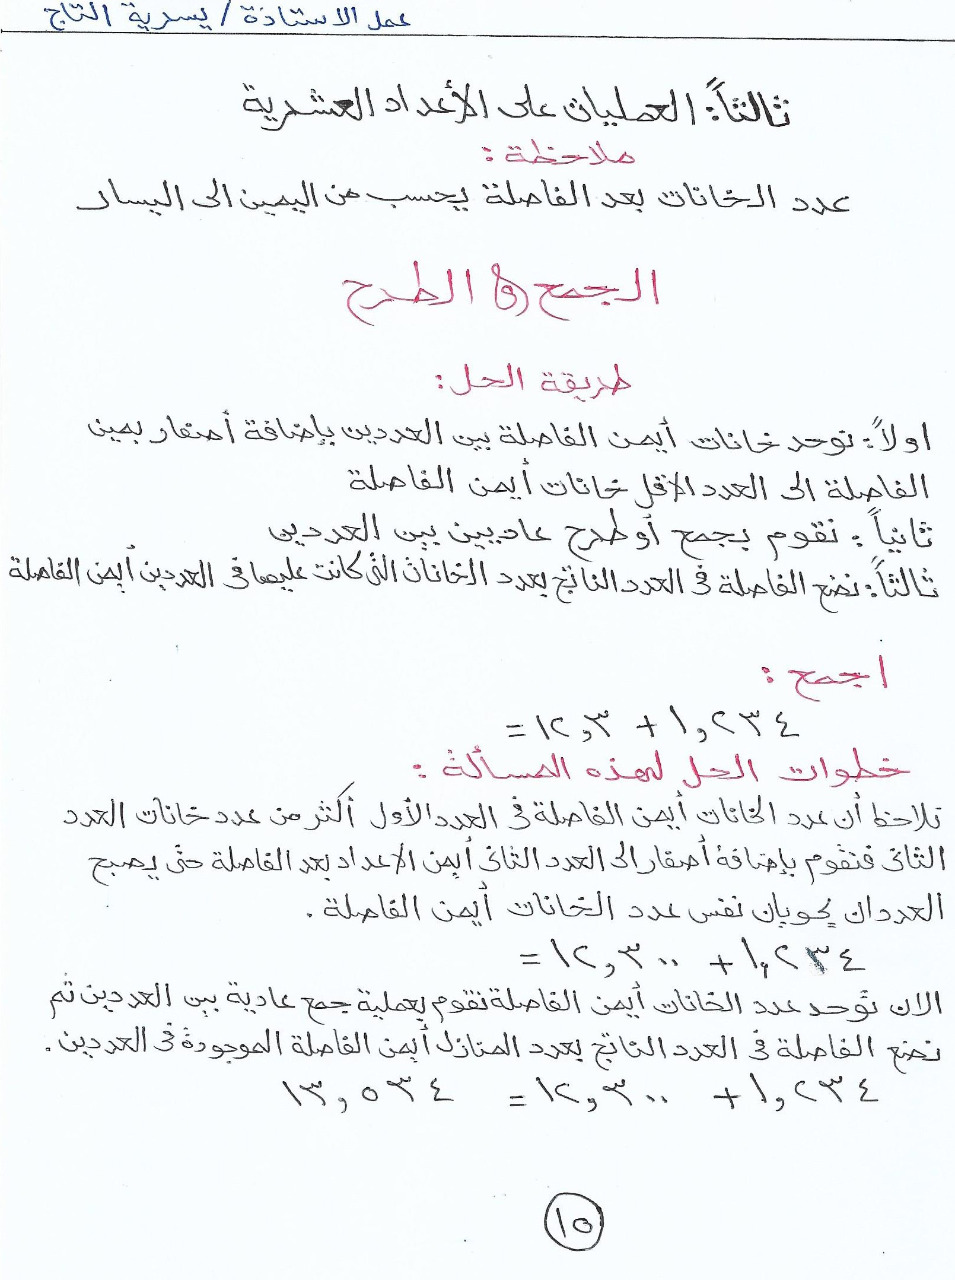 عمل الاستاذة / يسرية التاج
ثالثاً: العمليات على الأعداد العشرية
ملاحظة :
عدد الخانات بعد الفاصلة يحسب من اليمين الى اليسار
الجمع و الطرح
طريقة الحل:
اولاً: نوحد خانات أيمن الفاصلة بين العددين بإضافة أصفار يمين
الفاصلة الى العدد الاقل خانات أيمن الفاصلة
ثانياً : نقوم بجمع أو طرح عاديين بين العددين
ثالثاً: نضع الفاصلة في العدد الناتج بعدد الخانات التي كانت عليها في العددين أيمن الفاصلة
اجمع :
١,٢٣٤ + ١٢,٣ =
خطوات الحل لهذه المسألة :
نلاحظ أن عدد الخانات أيمن الفاصلة في العدد الأول أكثر من عدد خانات العدد
الثاني فنقوم بإضافة أصفار الى العدد الثاني أيمن الاعداد بعد الفاصلة حتى يصبح
العددان يحويان نفس عدد الخانات أيمن الفاصلة .
١,٢٣٤ + ١٢,٣٠٠ =
الان توحد عدد الخانات أيمن الفاصلة نقوم بعملية جمع عادية بين العددين ثم
نضع الفاصلة في العدد الناتج بعدد المنازل أيمن الفاصلة الموجودة في العددين .
١,٢٣٤ + ١٢,٣٠٠ = ١٣,٥٣٤
١٥